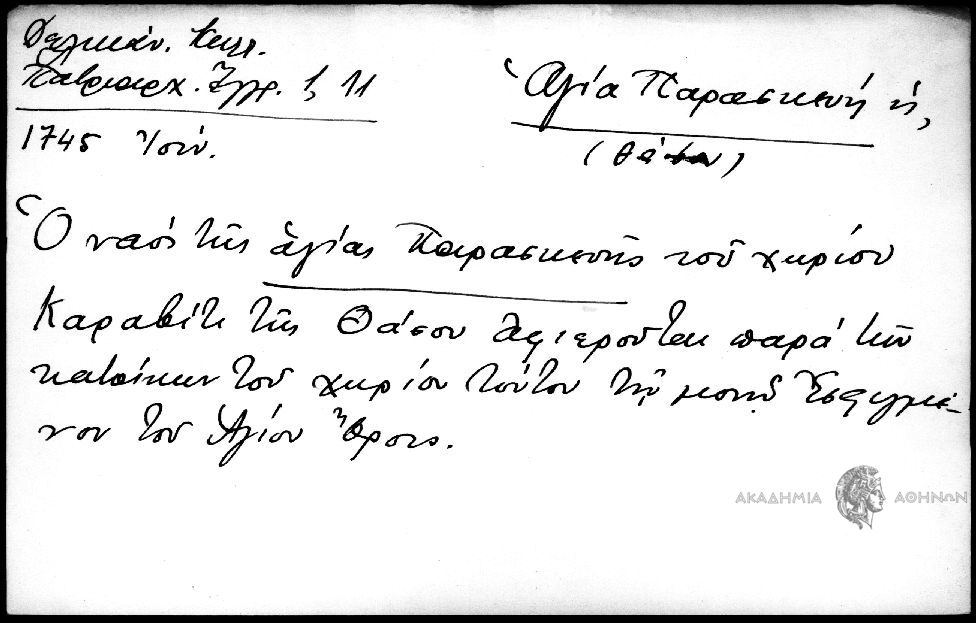 Δελικάν. Καλλ.
Πατριαρχ. Ἔγγρ. 1, 11
1745 Ἰούν.
Ἁγία Παρασκευή ἡ,
(Θάσου)
Ὁ ναός τῆς ἁγίας Παρασκευῆς τοῦ χωρίου
Καραβίτι τῆς Θάσου ἀφιεροῦται παρά τῶν
κατοίκων τοῦ χωρίου τούτου τῇ μονῇ Ἐσφιγμέ-
νου τοῦ Ἁγίου Ὄρους.
ΑΚΑΔΗΜΙΑ ΑΘΗΝΩΝ